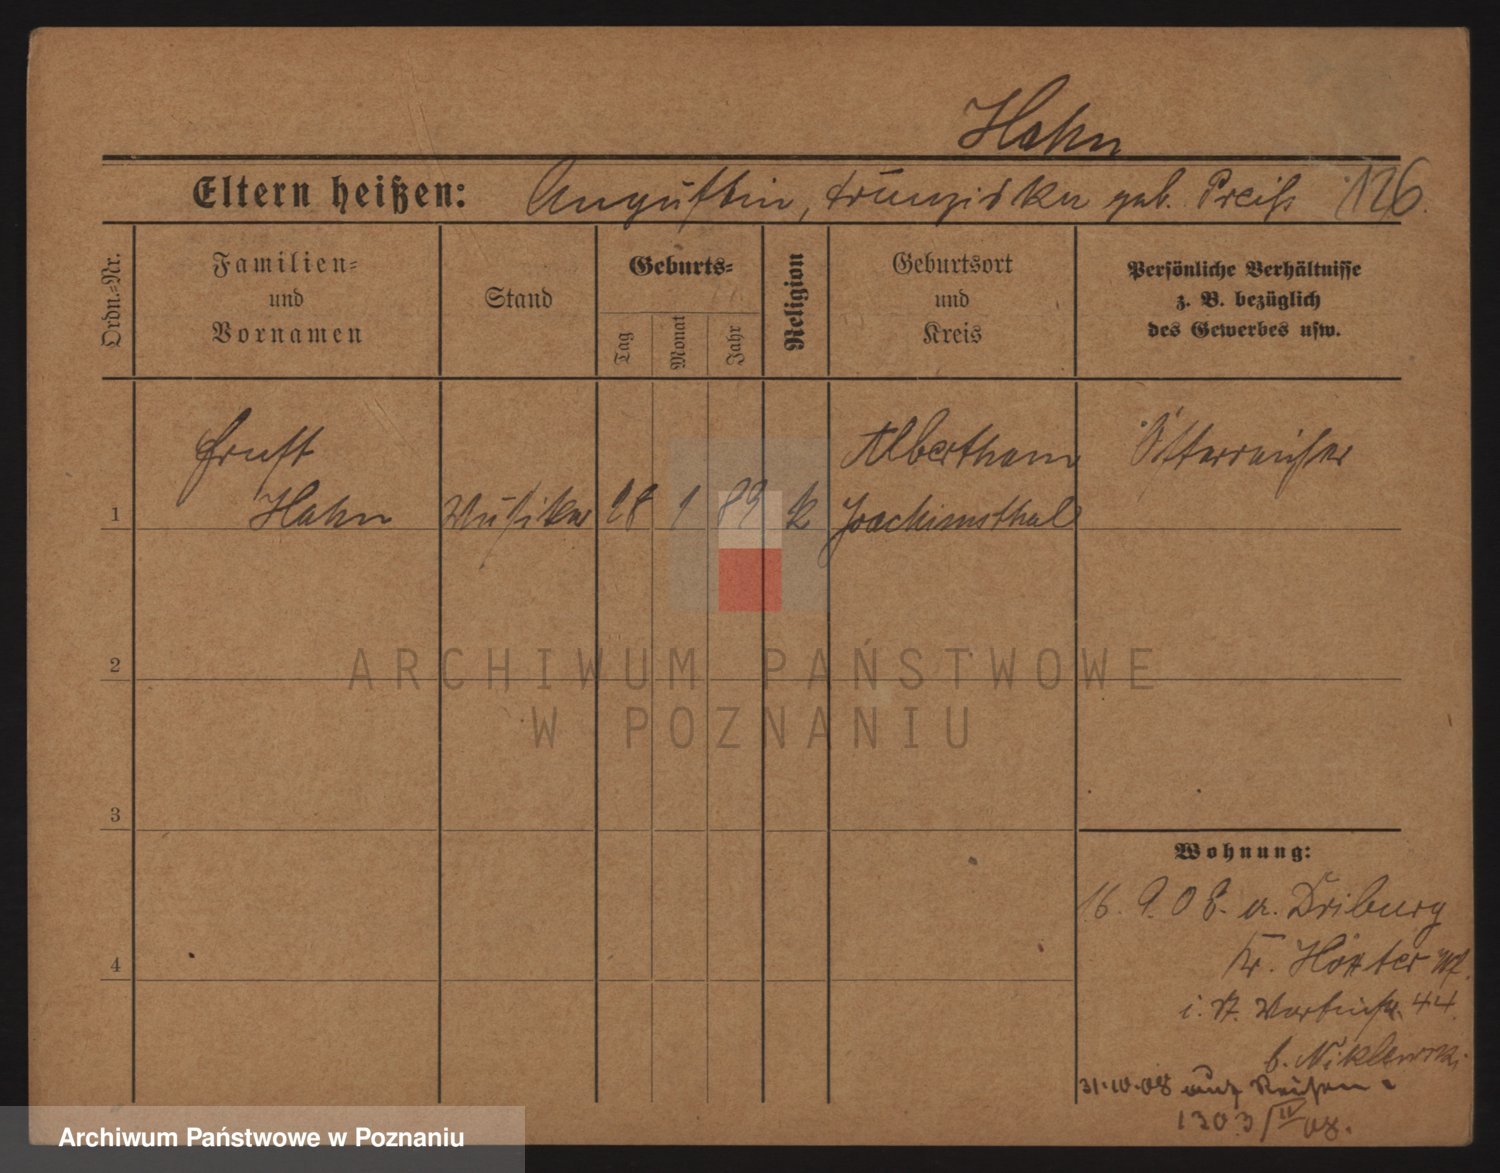 Hahn
Eltern heißen: Augustin, Franziska geb. Preiß 126.
Ordn.-Nr.
Familien-
und
Vornamen
Stand
Geburts-
Tag
Monat
Jahr
Religion
Geburtsort
und
Kreis
Persönliche Verhältnisse
z. B. bezüglich
des Gewerbes usw.
Ernst Albertham Österreicher
1 Hahn Musiker 28 1 89 k Joachimsthal
ARCHIWUM PAŃSTWOWE
2
W POZNANIU
3
Wohnung:
16. 9. 08. a. Driburg
4 Kr. Höxter Wf.
i. St. Martinstr. 44.
b. Niklewski
31.10.08 auf Reisen.
1303/II 08.
Archiwum Państwowe w Poznaniu